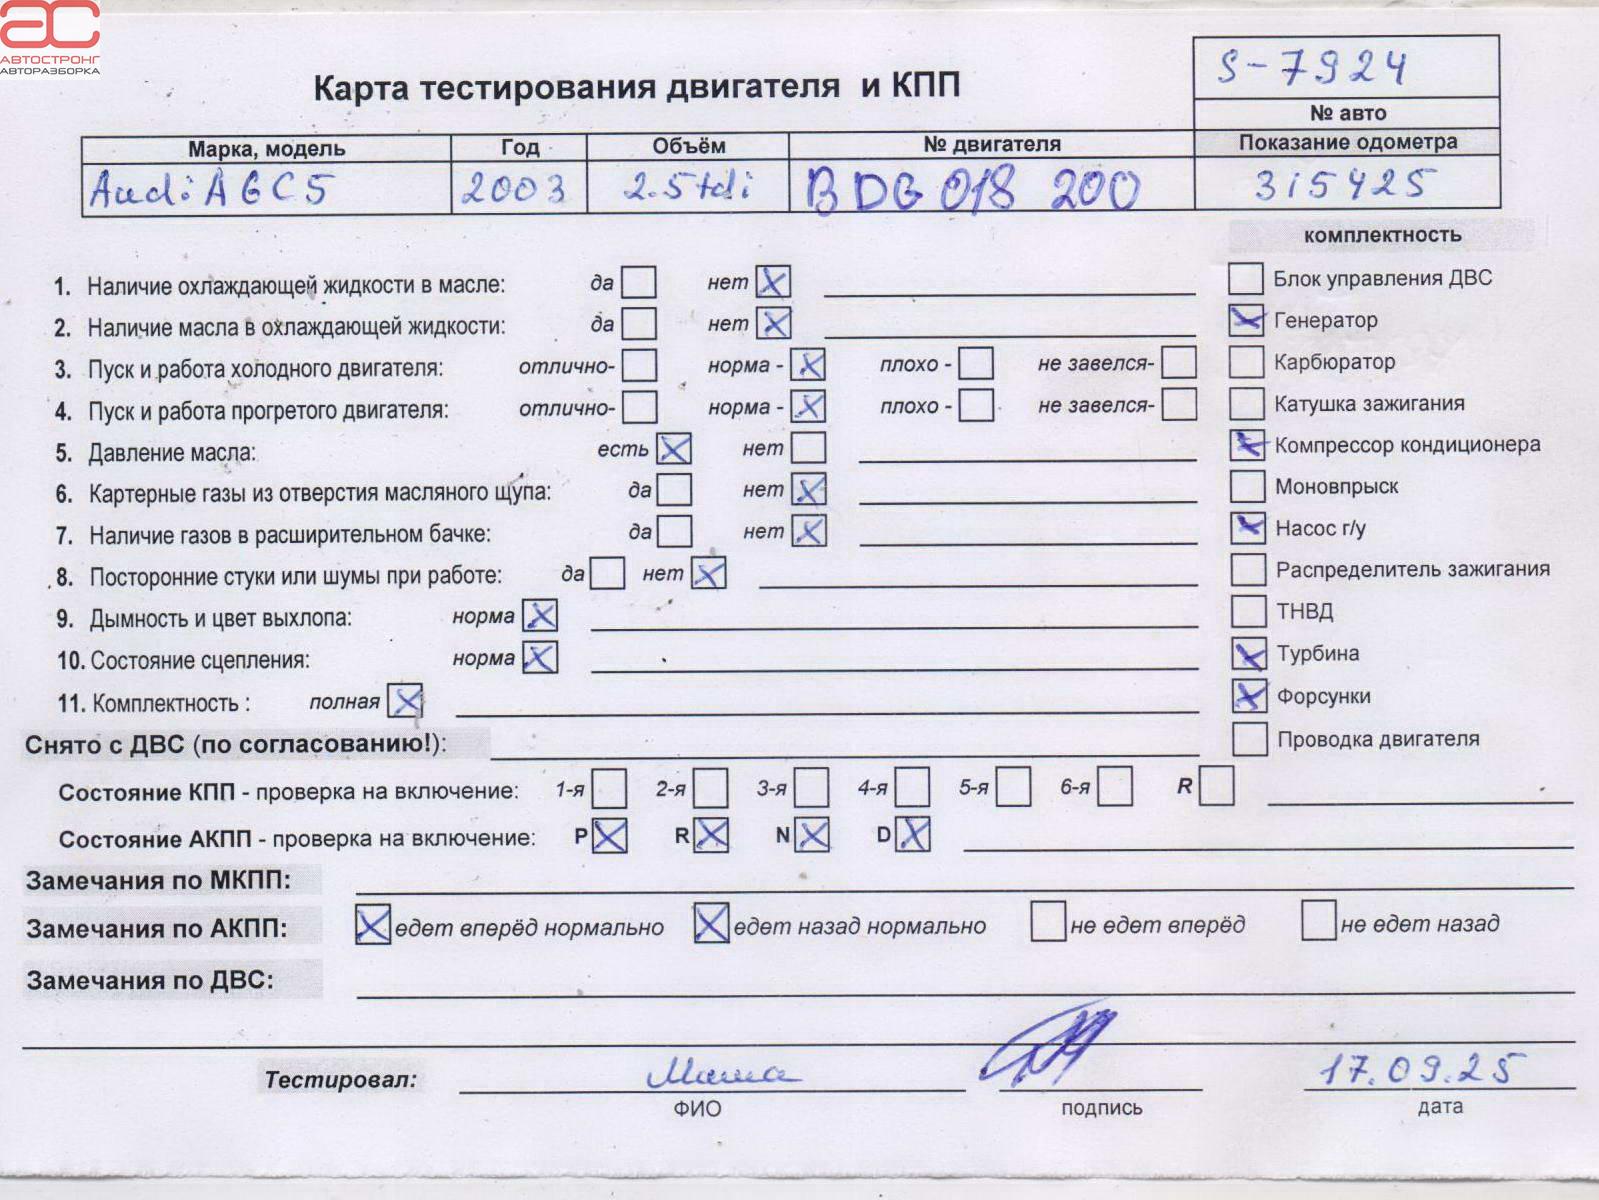 АВТОСТРОНГ
АВТОРАЗБОРКА
S-7924
Карта тестирования двигателя и КПП
№ авто
Марка, модель Год Объём № двигателя Показание одометра
Audi A6 C5 2003 2.5 tdi BDG 018 200 315425
комплектность
1. Наличие охлаждающей жидкости в масле: да нет Блок управления ДВС
2. Наличие масла в охлаждающей жидкости: да нет Генератор
3. Пуск и работа холодного двигателя: отлично- норма - плохо - не завелся- Карбюратор
4. Пуск и работа прогретого двигателя: отлично- норма - плохо - не завелся- Катушка зажигания
5. Давление масла: есть нет Компрессор кондиционера
6. Картерные газы из отверстия масляного щупа: да нет Моновпрыск
7. Наличие газов в расширительном бачке: да нет Насос г/у
8. Посторонние стуки или шумы при работе: да нет Распределитель зажигания
9. Дымность и цвет выхлопа: норма ТНВД
10. Состояние сцепления: норма Турбина
11. Комплектность : полная Форсунки
Снято с ДВС (по согласованию!): Проводка двигателя
Состояние КПП - проверка на включение: 1-я 2-я 3-я 4-я 5-я 6-я R
Состояние АКПП - проверка на включение: P R N D
Замечания по МКПП:
Замечания по АКПП: едет вперёд нормально едет назад нормально не едет вперёд не едет назад
Замечания по ДВС:
Тестировал: 17.09.25
ФИО подпись дата